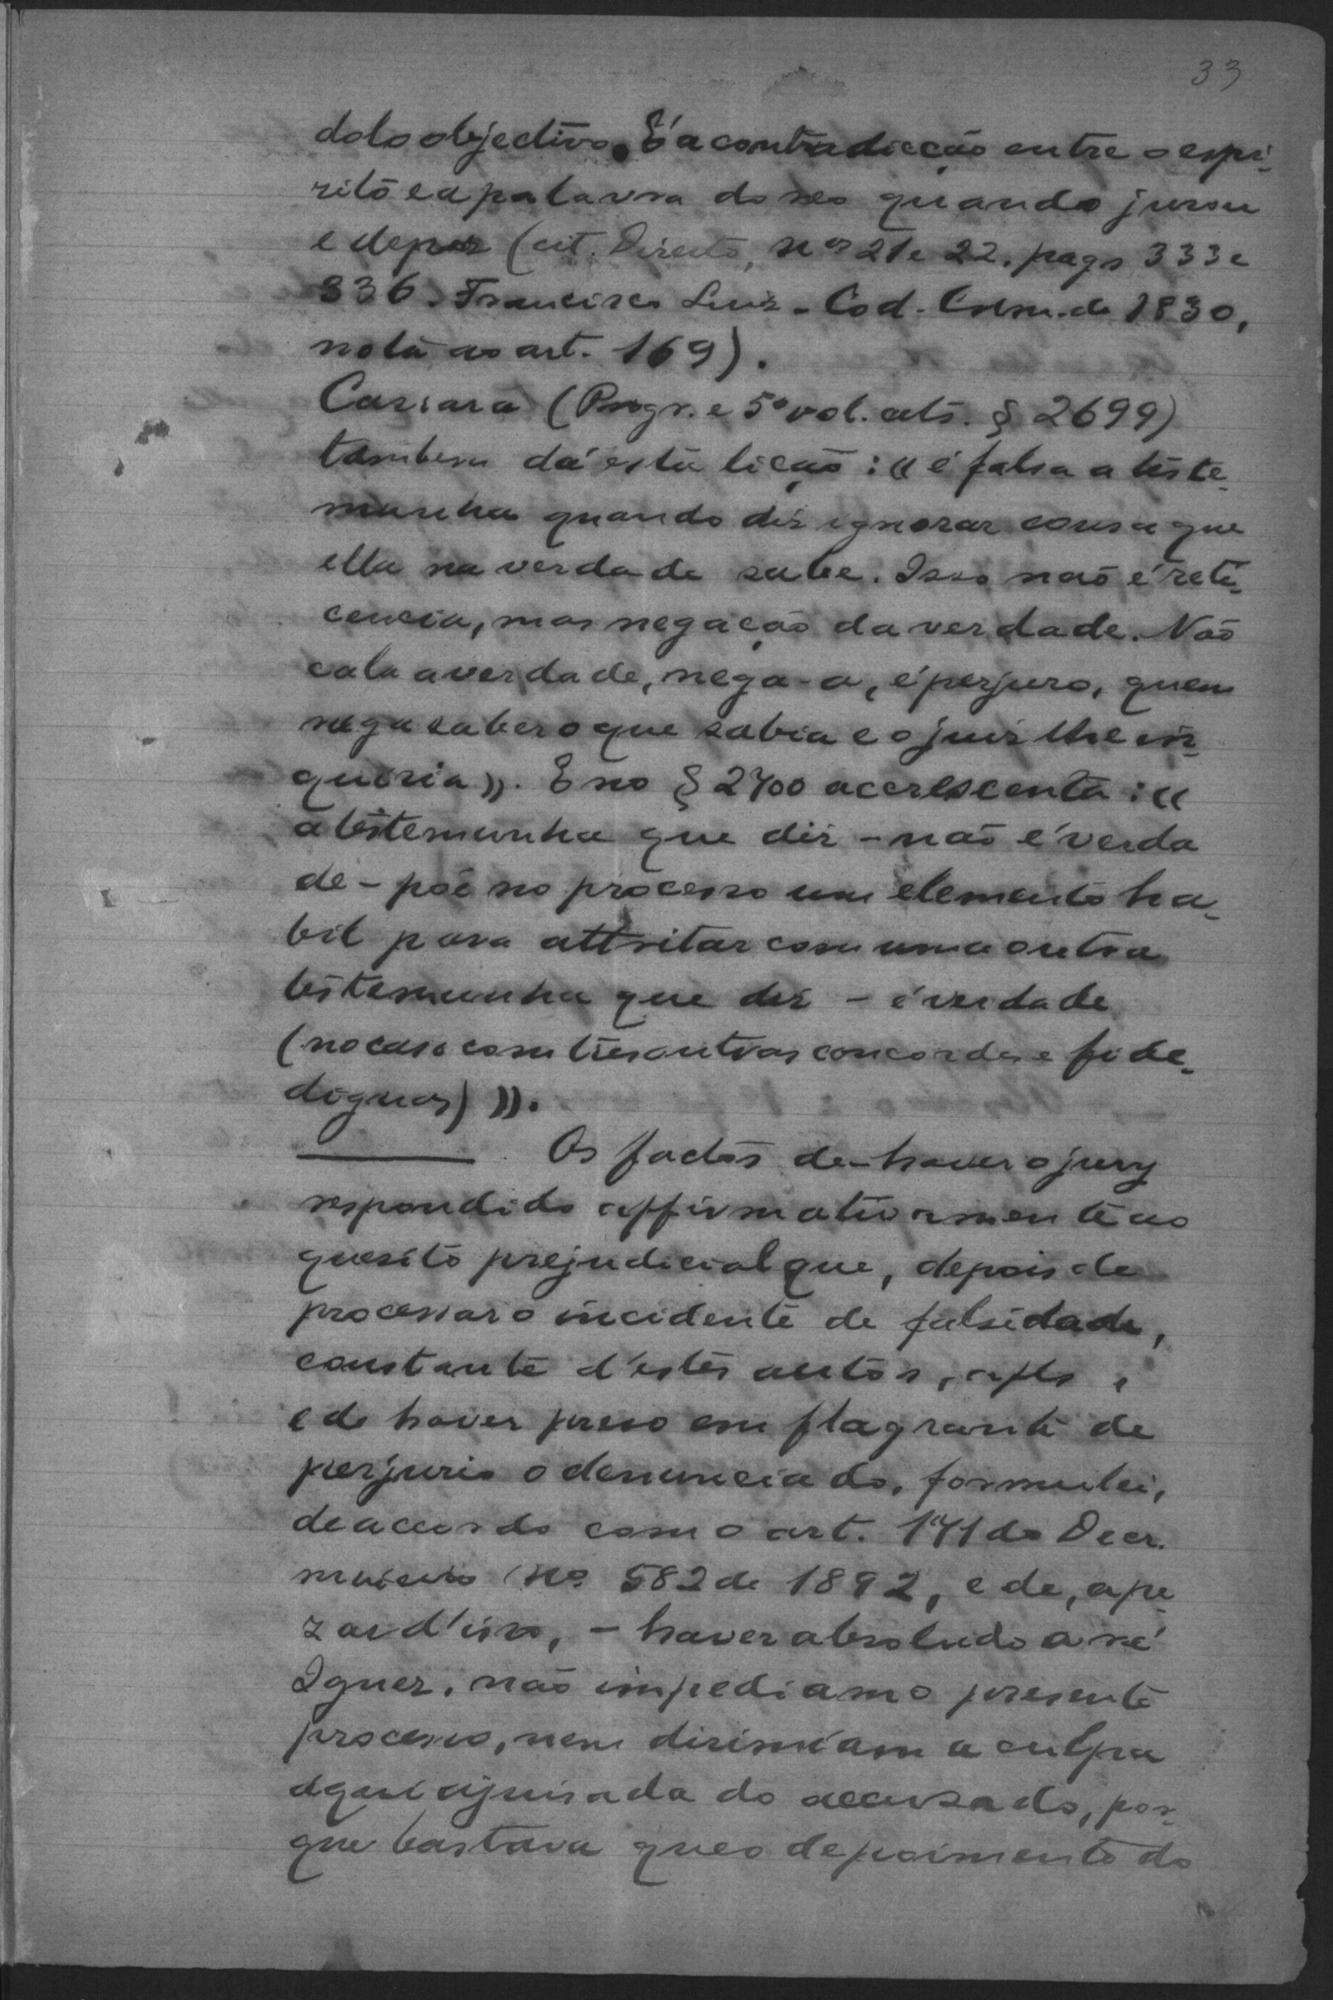 33
dolo objectivo. É a contradicção entre o espi-
rito e a palavra do reo quando jurou
e depoz (cit. Direito, nos 21 e 22. pags 333 e
336. Francisco Luiz - Cod. Crim. de 1830,
nota ao art. 169).
Carrara (Progr. e 5º vol. cits. § 2699)
tambem dá esta licção: « é falsa a teste-
munha quando diz ignorar cousa que
ella na verdade sabe. Isso não é reti-
cencia, mas negação da verdade. Não
cala a verdade, nega-a, é perjuro, quem
nega saber o que sabia e o juiz lhe in-
quiria ». E no § 2700 accrescenta: «
a testemunha que diz - não é verda
de - põe no processo um elemento ha-
bil para attritar com uma outra
testemunha que diz - é verdade
(no caso com tres outras concordes e fide-
dignas) ».
Os factos de - haver o jury
respondido affirmativamente ao
quesito prejudicial que, depois de
processar o incidente de falsidade,
constante d'estes autos, a fls ,
e de haver preso em flagrante de
perjurio o denunciado, formulei,
de accordo com o art. 171 do Decr.
mineiro nº 582 de 1892, e de, ape
zar d'isso, - haver absolvido a ré
Ignez, não impediam o presente
processo, nem dirimiam a culpa
aqui ajuisada do accusado, por-
que bastava que o depoimento do